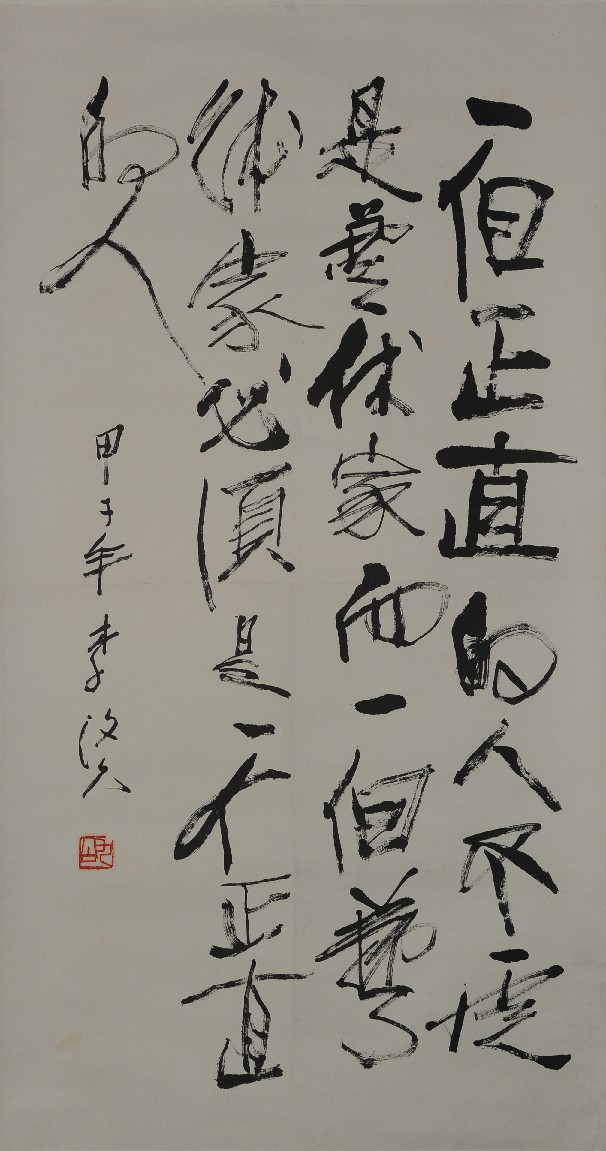 一個正直的人不一定
是藝術家而一個藝
術家必須是一个正直
的人
甲子年李